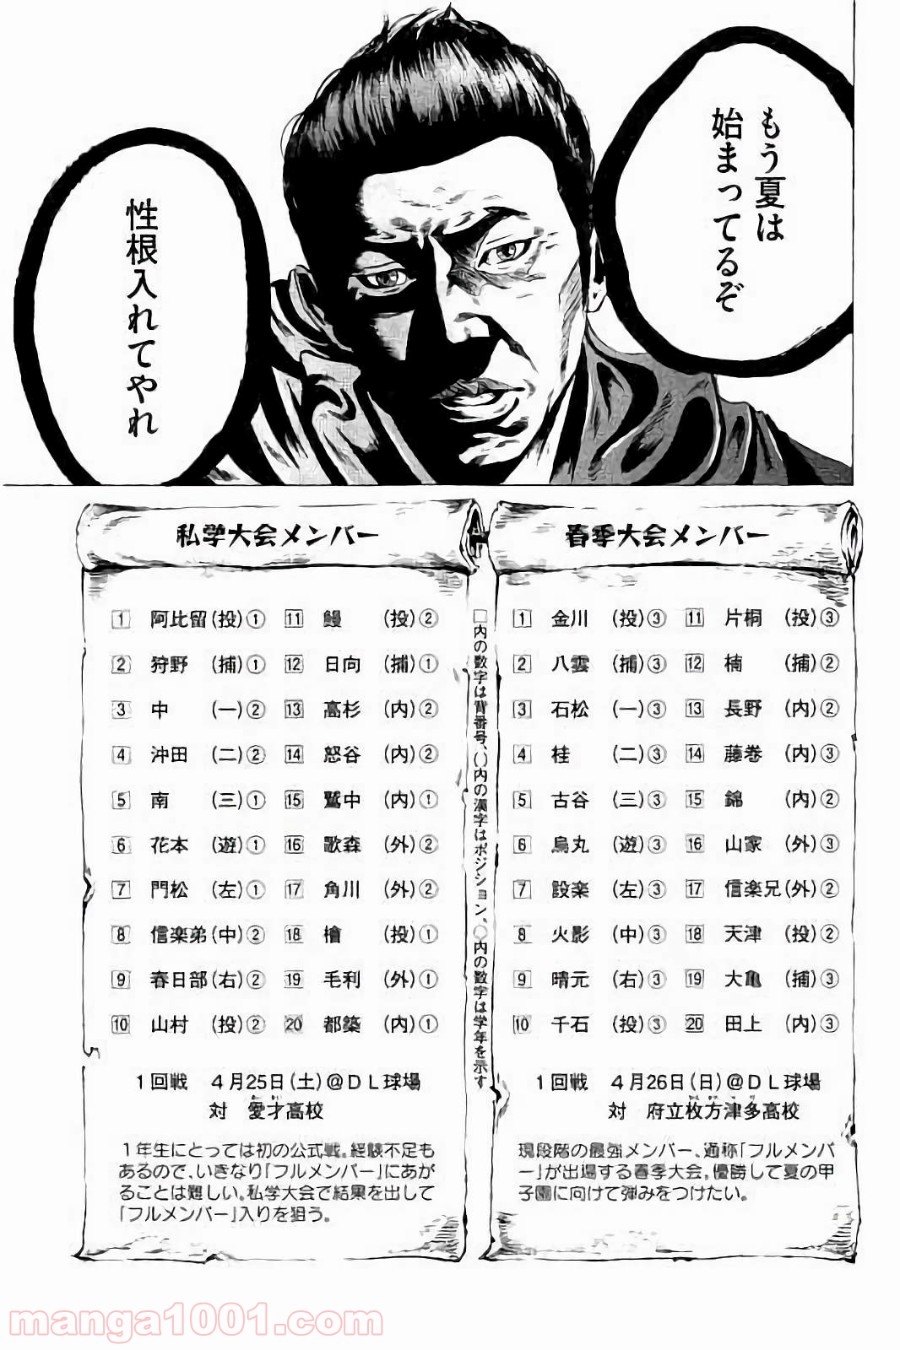 もう夏は
始まってるぞ
性根入れてやれ
春季大会メンバー
1 金川 (投)③ 11 片桐 (投)③
2 八雲 (捕)③ 12 楠 (捕)②
3 石松 (一)③ 13 長野 (内)②
4 桂 (二)③ 14 藤巻 (内)③
5 古谷 (三)③ 15 錦 (内)②
6 烏丸 (遊)③ 16 山家 (外)③
7 設楽 (左)③ 17 信楽兄(外)②
8 火影 (中)③ 18 天津 (投)②
9 晴元 (右)③ 19 大亀 (捕)③
10 千石 (投)③ 20 田上 (内)③
1回戦 4月26日(日)@DL球場
対 府立枚方津多高校
現段階の最強メンバー、通称「フルメンバ
ー」が出場する春季大会。優勝して夏の甲
子園に向けて弾みをつけたい。
□内の数字は背番号、()内の漢字はポジション、○内の数字は学年を示す
私学大会メンバー
1 阿比留(投)① 11 鰻 (投)②
2 狩野 (捕)① 12 日向 (捕)①
3 中 (一)② 13 高杉 (内)②
4 沖田 (二)② 14 怒谷 (内)②
5 南 (三)① 15 鷲中 (内)①
6 花本 (遊)① 16 歌森 (外)②
7 門松 (左)① 17 角川 (外)②
8 信楽弟(中)② 18 檜 (投)①
9 春日部(右)② 19 毛利 (外)①
10 山村 (投)② 20 都築 (内)①
1回戦 4月25日(土)@DL球場
対 愛才高校
1年生にとっては初の公式戦。経験不足も
あるので、いきなり「フルメンバー」にあが
ることは難しい。私学大会で結果を出して
「フルメンバー」入りを狙う。
manga1001.com